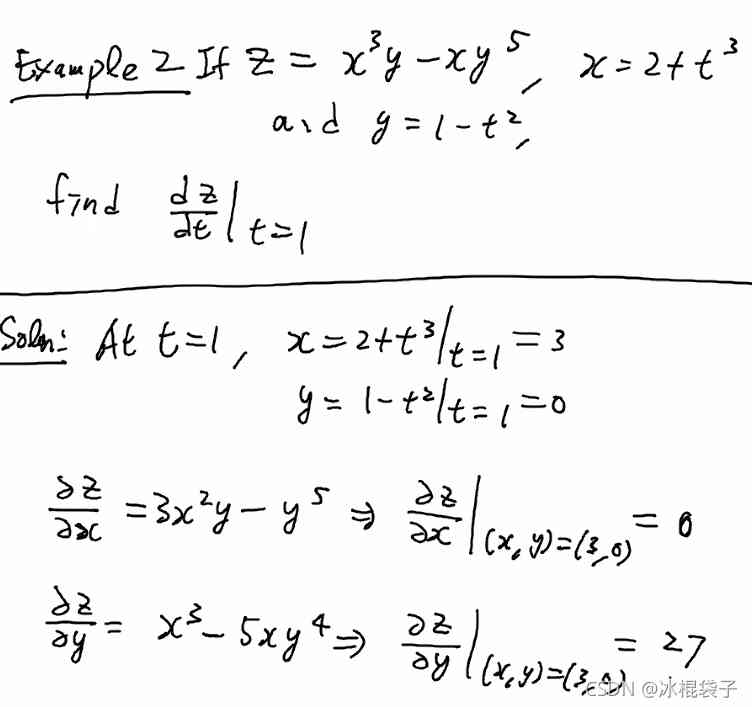 Example 2 If z = x³y - xy⁵, x = 2 + t³
and y = 1 - t²,
find dz/dt|t=1
Soln: At t=1, x = 2+t³|t=1 = 3
y = 1 - t²|t=1 = 0
∂z/∂x = 3x²y - y⁵ ⇒ ∂z/∂x|(x,y)=(3,0) = 0
∂z/∂y = x³ - 5xy⁴ ⇒ ∂z/∂y|(x,y)=(3,0) = 27
CSDN @冰棍袋子